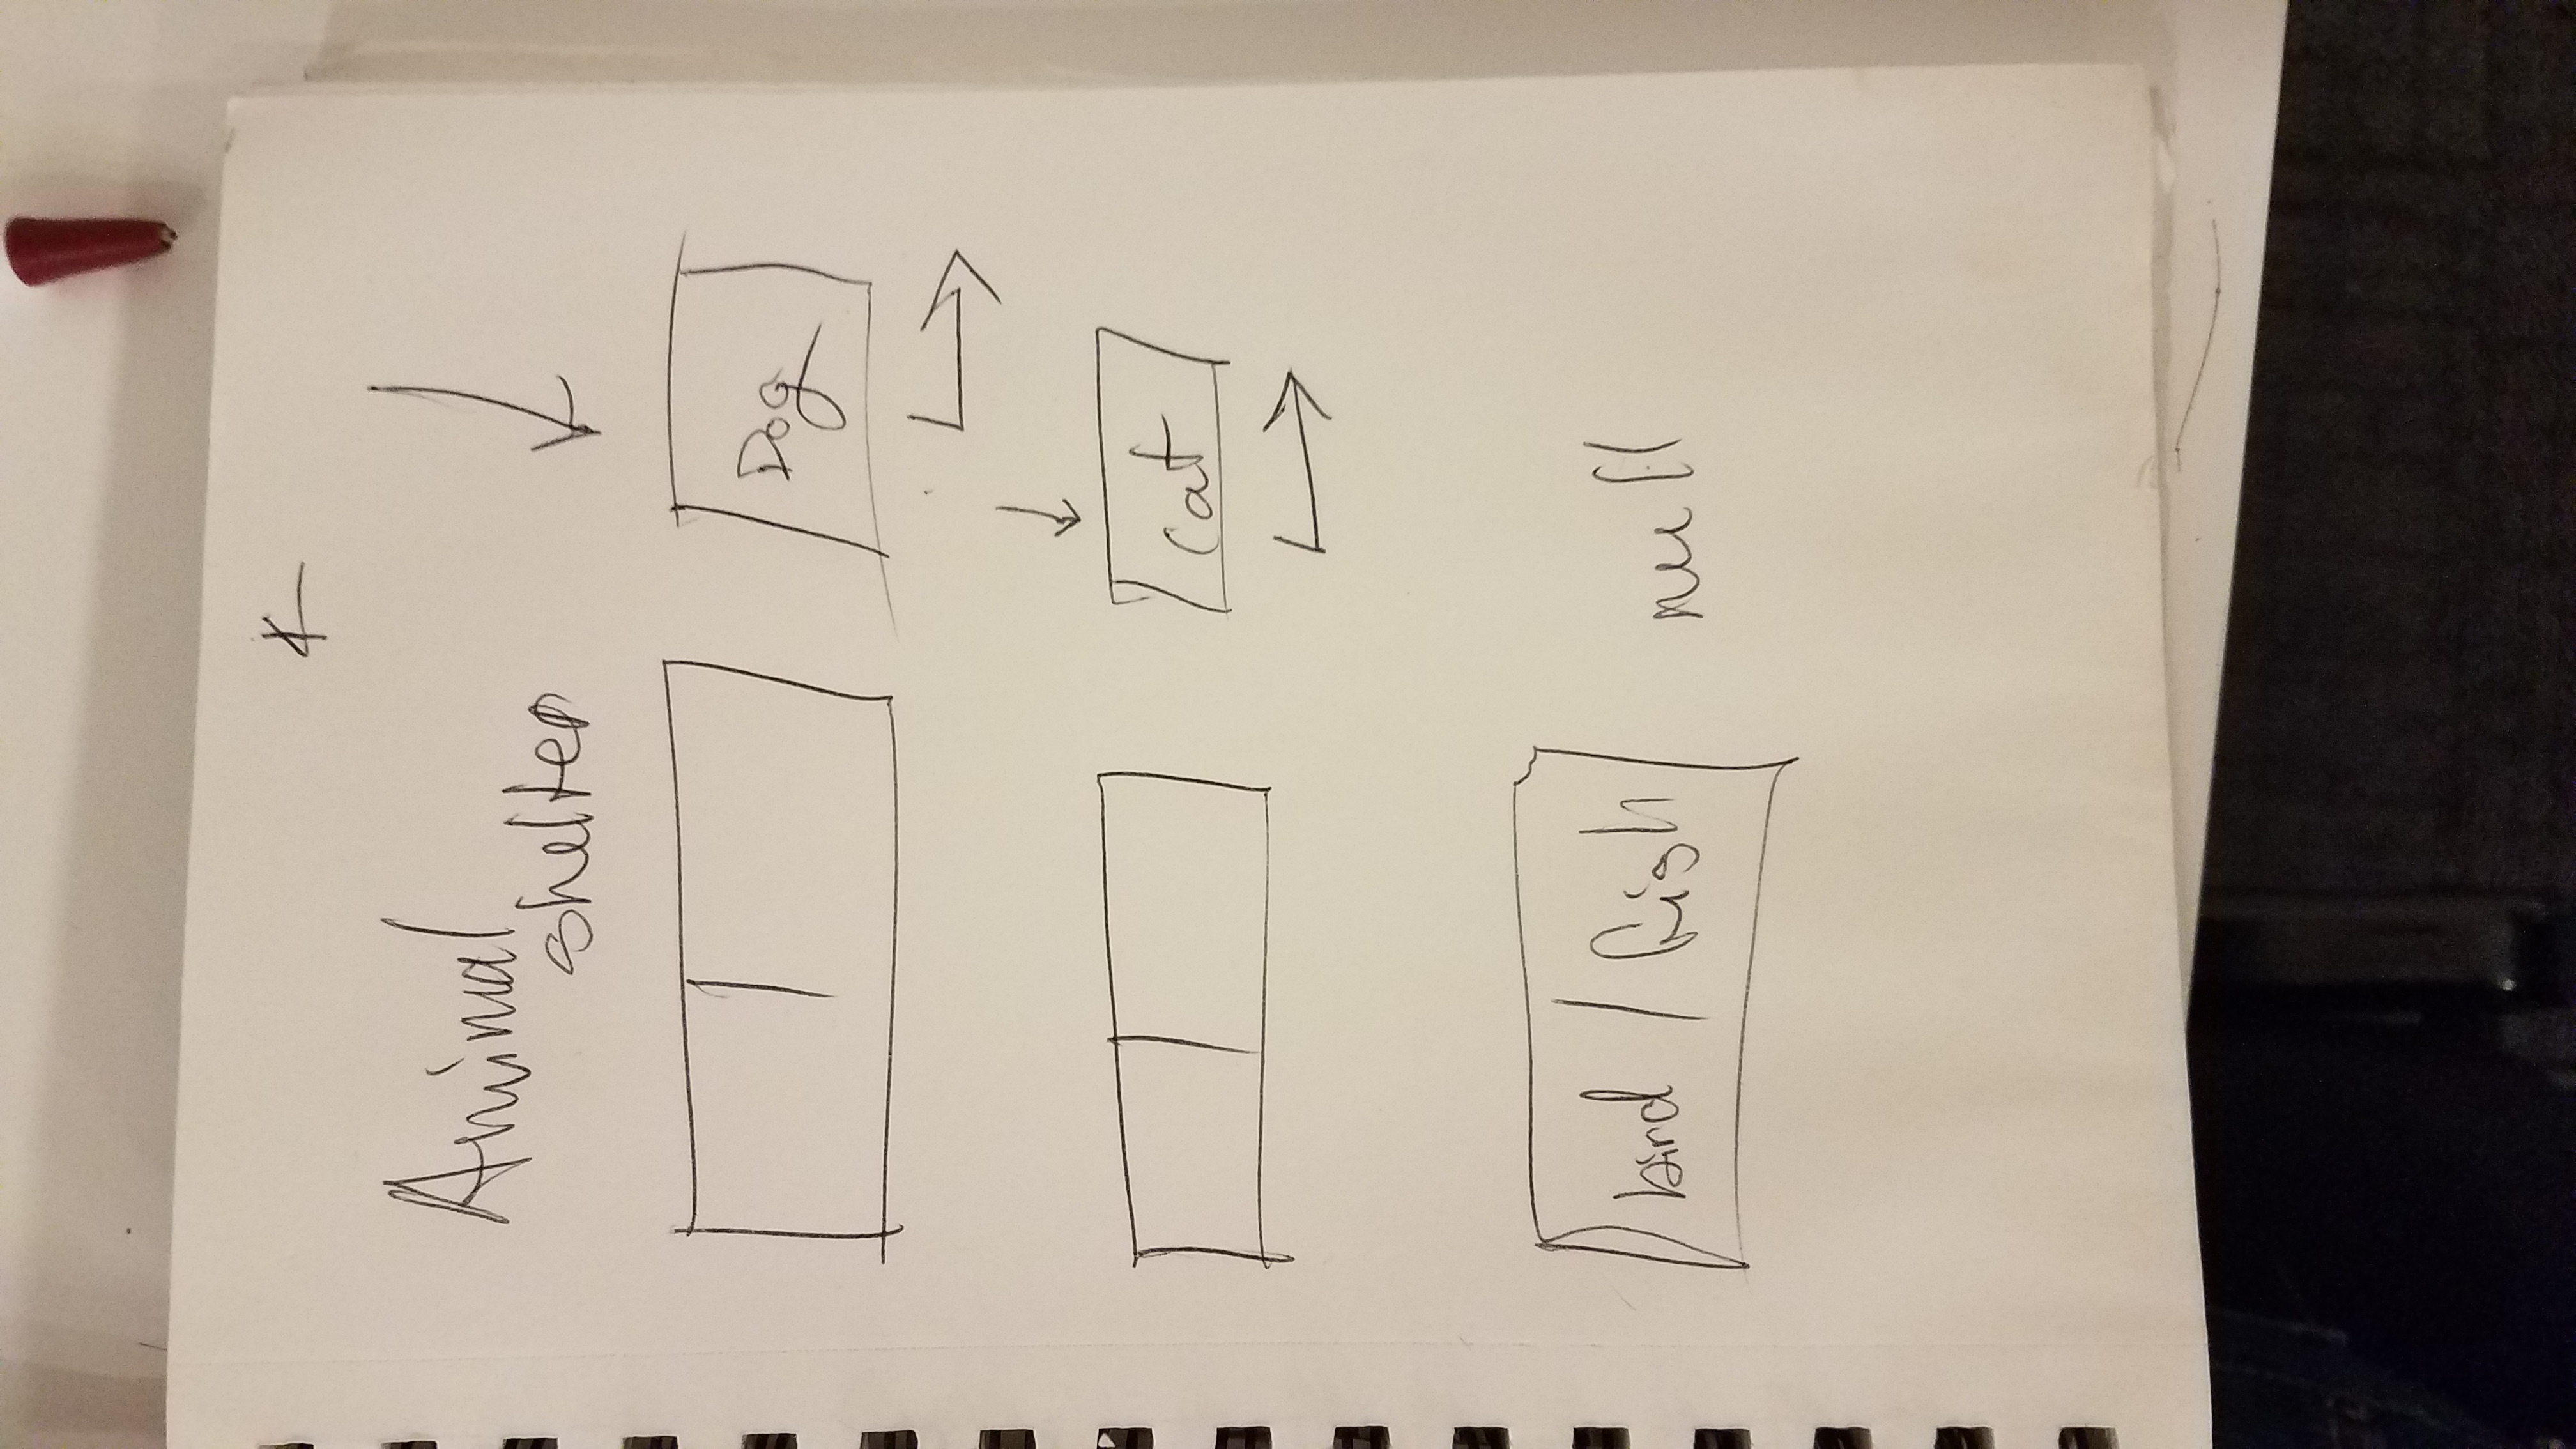 Animal
shelter
Dog
cat
bird / fish
null